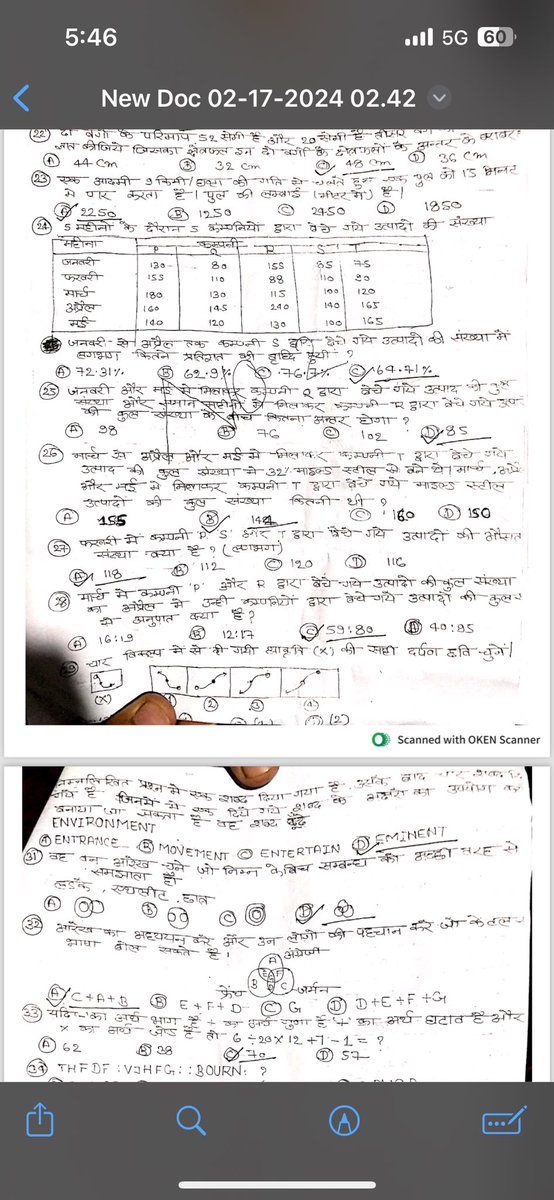 5:46
5G 60
New Doc 02-17-2024 02.42
(22) दो वर्गो के परिमाप 52 सेमी है और 20 सेमी है
ज्ञात कीजिये जिसका क्षेत्रफल इन दो वर्गो के क्षेत्रफलो के अन्तर के बराबर
(A) 44 cm (B) 32 cm (C) 48 cm (D) 36 cm
(23) एक आदमी 9 किमी/घण्टा की गति से चलते हुए एक पुल को 15 मिनट
में पार करता है। पुल की लम्बाई (मीटर में) है।
(A) 2250 (B) 1250 (C) 2450 (D) 1850
(24) 5 महीनो के दौरान 5 कम्पनियो द्वारा बेचे गये उत्पादो की संख्या
महीना कम्पनी
P Q R S T
जनवरी 130 80 155 85 75
फरवरी 155 110 88 110 90
मार्च 180 130 115 100 120
अप्रैल 160 145 240 140 165
मई 140 120 130 100 165
जनवरी से अप्रैल तक कम्पनी S द्वारा बेचे गये उत्पादो की संख्या में
लगभग कितने प्रतिशत की वृद्धि हुयी ?
(A) 72.31% (B) 62.9% (C) 76.7% 64.41%
(25) जनवरी और मई से मिलाकर कम्पनी Q द्वारा बेचे गये उत्पाद की कुल
संख्या और समान महीनो से मिलाकर कम्पनी R द्वारा बेचे गये
की कुल संख्या के बीच कितना अन्तर होगा ?
(A) 98 (B) 76 (C) 102 (D) 85
(26) मार्च से अप्रैल और मई से मिलाकर कम्पनी T द्वारा बेचे गये
उत्पाद की कुल संख्या में 32% माइल्ड स्टील से बने थे। मार्च,
और मई से मिलाकर कम्पनी T द्वारा बेचे गये माइल्ड स्टील
उत्पादो की कुल संख्या कितनी थी ?
(A) 155 (B) 144 (C) 160 (D) 150
(27) फरवरी में कम्पनी 'P' 'S' और T द्वारा बेचे गये उत्पादो की औसत
संख्या क्या है ? (लगभग)
(A) 118 (B) 112 (C) 120 (D) 116
(28) मार्च में कम्पनी 'P' और R द्वारा बेचे गये उत्पादो की कुल संख्या
का अप्रैल में उन्ही कम्पनियो द्वारा बेचे गये उत्पादो की कुल
से अनुपात क्या है ?
(A) 16:19 (B) 12:17 (C) 59:80 (D) 40:95
(29) चार विकल्प में से दी गयी आकृति (X) की सही दर्पण छवि चुनें।
(X) (1) (2) (3) (4)
(2)
Scanned with OKEN Scanner
निम्नलिखित प्रश्न में एक शब्द दिया गया है
गये है जिनमे से एक दिये गये शब्द के अक्षरो का उपयोग कर
बनाया जा सकता है वह शब्द ढूंढे
ENVIRONMENT
(A) ENTRANCE (B) MOVEMENT (C) ENTERTAIN (D) EMINENT
(31) वह वन आरेख चुने जो निम्न के बिच सम्बन्ध को अच्छी तरह से
समझाता है।
लड़के, एथलीट, छात्र
(A) (B) (C) (D)
(32) आरेख का अध्ययन करे और उन लोगो की पहचान करे जो केवल
भाषा बोल सकते है।
A अंग्रेजी
फ्रेंच B C जर्मन
(A) C+A+B (B) E+F+D (C) G (D) D+E+F+G
(33) यदि '-' का अर्थ भाग है ÷ का अर्थ गुणा है '+' का अर्थ घटाव है और
× का अर्थ जोड है तो 6 ÷ 20 × 12 + 7 - 1 = ?
(A) 62 (B) 38 (C) 70 (D) 57
(34) THFDF : VJHFG :: BOURN : ?